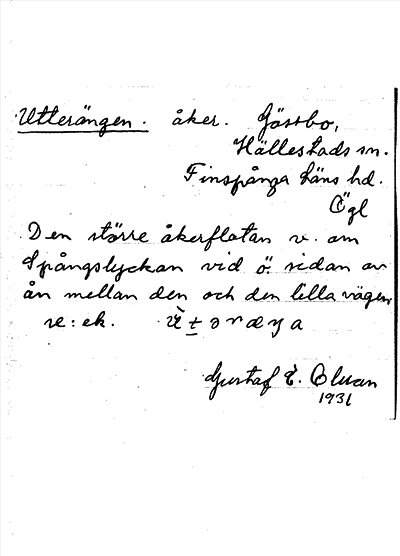 Utterängen. åker. Jössbo,
Hällestads sn.
Finspånga läns hd.
Ögl
Den större åkerflatan v. om
Spångslyckan vid ö. sidan av
ån mellan den och den lilla vägen,
se: ek.
Gustaf E. Olsson
1931